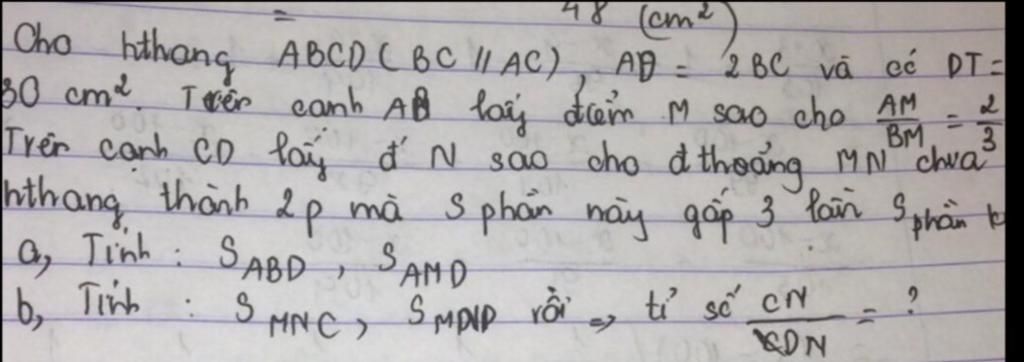 = 48 (cm²)
Cho hthang ABCD (BC // AC), AD = 2BC và có DT =
30 cm². Trên cạnh AB lấy điểm M sao cho AM/BM = 2/3
Trên cạnh CD lấy đ' N sao cho đ thoảng MN chưa
hthang thành 2p mà S phần này gấp 3 lần S phần k
a, Tính : S ABD , S AMD
b, Tính : S MNC , S MDND rồi => tỉ số CN/DN = ?